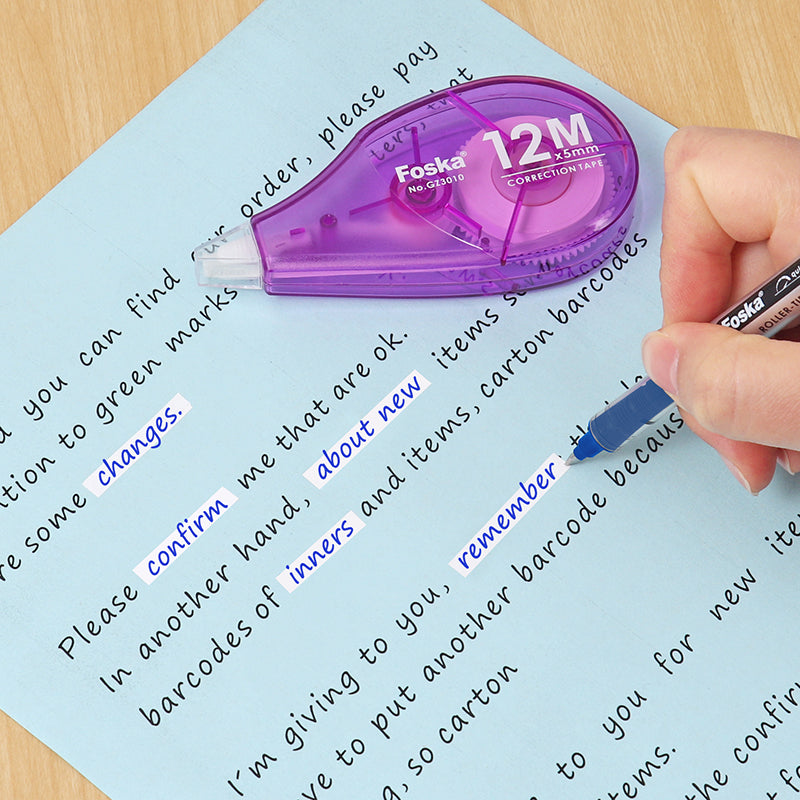 Foska®
No.GZ3010
12M
x5mm
CORRECTION TAPE
Foska®
ROLLER-TI
order, please pay
you can find our
ters, that
ition to green marks
re some changes.
Please confirm me that are ok.
In another hand, about new items
barcodes of inners and items, carton barcodes
I'm giving to you, remember
ve to put another barcode becaus
g, so carton
to you for new ite
tems.
the confir